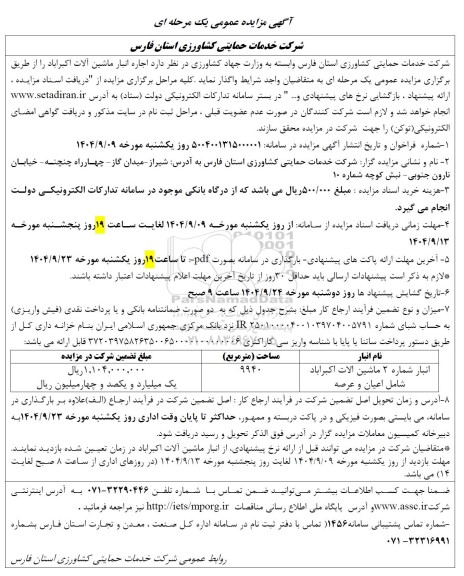 آگهی مزایده عمومی یک مرحله ای
شرکت خدمات حمایتی کشاورزی استان فارس
شرکت خدمات حمایتی کشاورزی استان فارس وابسته به وزارت جهاد کشاورزی در نظر دارد اجاره انبار ماشین آلات اکبرآباد را از طریق
برگزاری مزایده عمومی یک مرحله ای به متقاضیان واجد شرایط واگذار نماید .کلیه مراحل برگزاری مزایده از "دریافت اسناد مزایده ،
ارائه پیشنهاد ، بازگشایی نرخ های پیشنهادی و.. " در بستر سامانه تدارکات الکترونیکی دولت (ستاد) به آدرس www.setadiran.ir
انجام خواهد شد و لازم است شرکت کنندگان در صورت عدم عضویت قبلی ، مراحل ثبت نام در سایت مذکور و دریافت گواهی امضای
الکترونیکی(توکن) را جهت شرکت در مزایده محقق سازند.
۱-شماره فراخوان و تاریخ انتشار آگهی مزایده در سامانه: ۵۰۰۴۰۰۱۳۱۵۰۰۰۰۰۱ روز یکشنبه مورخه ۱۴۰۴/۹/۰۹
۲- نام و نشانی مزایده گزار: شرکت خدمات حمایتی کشاورزی استان فارس به آدرس: شیراز-میدان گاز- چهارراه چنچنه- خیابان
نارون جنوبی- نبش کوچه شماره ۱۰
۳-هزینه خرید اسناد مزایده : مبلغ ۵۰۰/۰۰۰ریال می باشد که از درگاه بانکی موجود در سامانه تدارکات الکترونیکی دولت
انجام می گیرد.
۴-مهلت زمانی دریافت اسناد مزایده از سامانه: از روز یکشنبه مورخه ۱۴۰۴/۹/۰۹ لغایت ساعت ۱۹روز پنجشنبه مورخه
۱۴۰۴/۹/۱۳
۵- آخرین مهلت ارائه پاکت های پیشنهادی- بارگذاری در سامانه بصورت pdf-: تا ساعت۱۹روز یکشنبه مورخه ۱۴۰۴/۹/۲۳
*لازم به ذکر است پیشنهادات ارسالی باید حداقل ۳۰روز از تاریخ آخرین مهلت اعلام پیشنهادات اعتبار داشته باشند.
۶-تاریخ گشایش پیشنهاد ها روز دوشنبه مورخه ۱۴۰۴/۹/۲۴ ساعت ۹ صبح
۷-میزان و نوع تضمین فرآیند ارجاع کار مبلغ: بشرح جدول ذیل که به دو صورت ضمانتنامه بانکی و یا پرداخت نقدی (فیش واریزی)
به حساب شبای شماره IR نزد بانک مرکزی جمهوری اسلامی ایران بنام خزانه داری کل از
طریق دستور پرداخت ساتنا یا پایا با شناسه واریز سی کاراکتری قابل ارائه می باشد:
نام انبار مساحت (مترمربع) مبلغ تضمین شرکت در مزایده
انبار شماره ۲ ماشین الات اکبرآباد ۹۹۴۰ ۱,۱۰۴,۰۰۰,۰۰۰ریال
شامل اعیان و عرصه یک میلیارد و یکصد و چهارمیلیون ریال
۸-آدرس و زمان تحویل اصل تضمین شرکت در فرآیند ارجاع کار : اصل تضمین شرکت در فرآیند ارجاع (الف)علاوه بر بارگذاری در
سامانه، می بایستی بصورت فیزیکی و در پاکت دربسته و ممهور، حداکثر تا پایان وقت اداری روز یکشنبه مورخه ۱۴۰۴/۹/۲۳به
دبیرخانه کمیسیون معاملات مزایده گزار در آدرس فوق الذکر تحویل و رسید دریافت شود.
*متقاضیان شرکت در مزایده می توانند قبل از ارائه نرخ پیشنهادی، از انبار ماشین آلات اکبرآباد در زمان تعیین شده بازدید نمایند.
مهلت بازدید از روز یکشنبه مورخه ۱۴۰۴/۹/۰۹ لغایت روز پنجشنبه مورخه ۱۴۰۴/۹/۱۳ (در روزهای اداری از ساعت ۸ صبح لغایت
۱۴) می باشد.
ضمنا جهت کسب اطلاعات بیشتر می توانید ضمن تماس با شماره تلفن ۳۲۲۹۰۴۴۶-۰۷۱ به آدرس اینترنتی
شرکتwww.assc.ir وآدرس پایگاه ملی اطلاع رسانی مناقصات http://iets/mporg.ir نیز مراجعه فرمائید .
-شماره تماس پشتیبانی سامانه۱۴۵۶( تماس با دفتر ثبت نام در سامانه اداره کل صنعت ، معدن و تجارت استان فارس بشماره
۳۲۳۱۶۹۹۱-۰۷۱
روابط عمومی شرکت خدمات حمایتی کشاورزی استان فارس